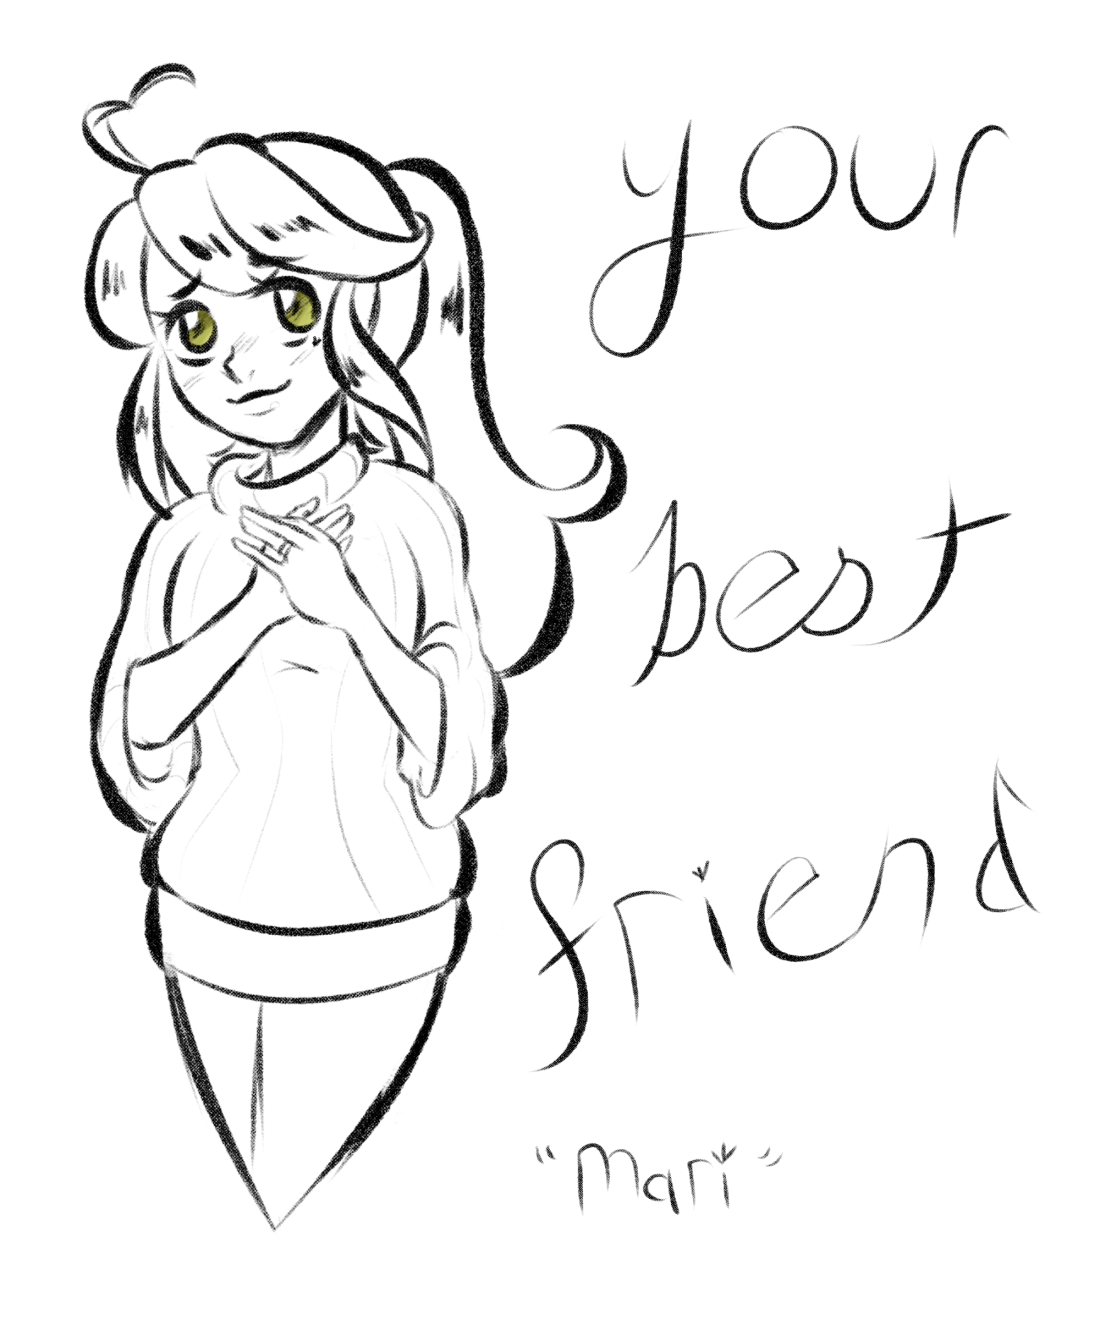 your
best
friend
"Mari"